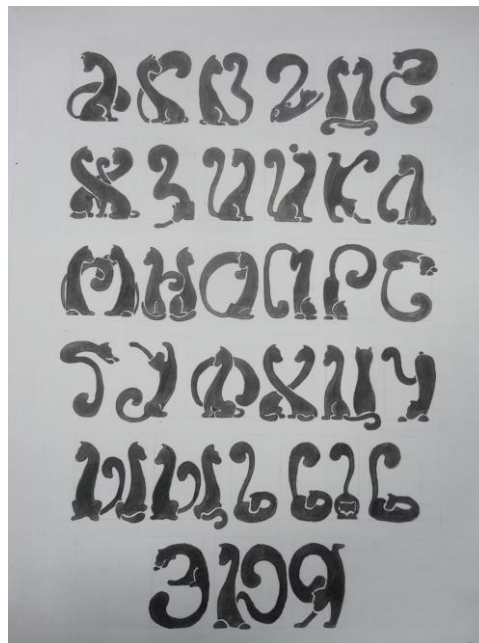 АБВГДЕ
ЖЗИЙКЛ
МНОПРС
ТУФХЦЧ
ШЩЪЫЬ
ЭЮЯ